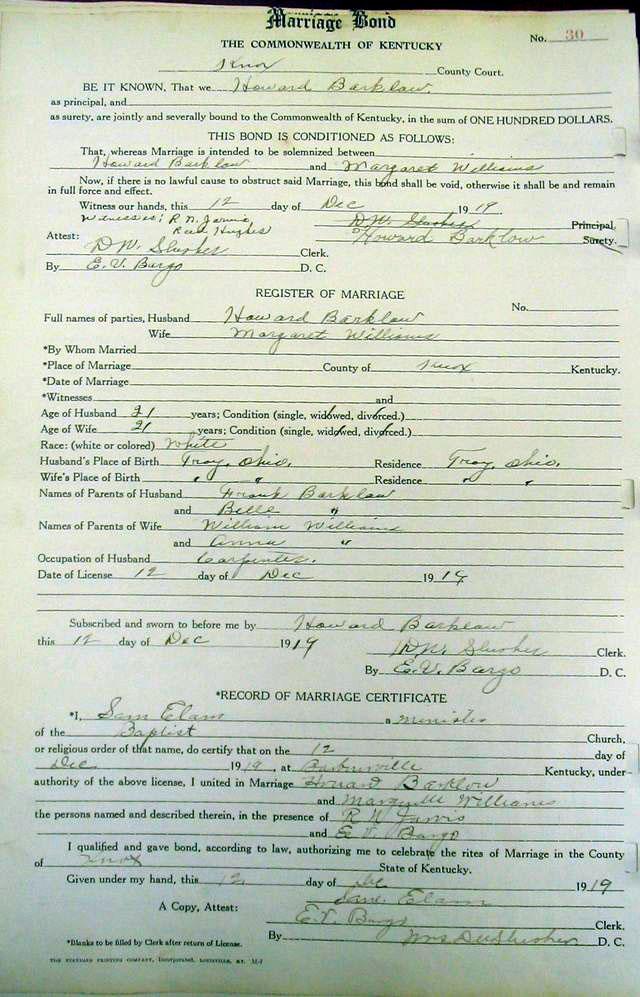 Marriage Bond
No. 30
THE COMMONWEALTH OF KENTUCKY
Knox County Court.
BE IT KNOWN, That we Howard Barklow.
as principal, and
as surety, are jointly and severally bound to the Commonwealth of Kentucky, in the sum of ONE HUNDRED DOLLARS.
THIS BOND IS CONDITIONED AS FOLLOWS:
That, whereas Marriage is intended to be solemnized between
Howard Barklow and Margaret Williams
Now, if there is no lawful cause to obstruct said Marriage, this bond shall be void, otherwise it shall be and remain
in full force and effect.
Witness our hands, this 12 day of Dec 1919
Witnesses: R. N. Jarvis D.W. Slusher Principal.
Hughes Howard Barklow Surety.
Attest: D.W. Slusher Clerk.
By E. V. Bargo D. C.
REGISTER OF MARRIAGE
No.
Full names of parties, Husband Howard Barklow
Wife Margaret Williams
*By Whom Married
*Place of Marriage County of Knox Kentucky.
*Date of Marriage
*Witnesses and
Age of Husband 21 years; Condition (single, widowed, divorced.)
Age of Wife 21 years; Condition (single, widowed, divorced.)
Race: (white or colored) White
Husband's Place of Birth Troy, Ohio. Residence Troy, Ohio.
Wife's Place of Birth " " Residence " "
Names of Parents of Husband Frank Barklow
and Belle "
Names of Parents of Wife William Williams
and Anna "
Occupation of Husband Carpenter.
Date of License 12 day of Dec 1919
Subscribed and sworn to before me by Howard Barklow
this 12 day of Dec 1919 D.W. Slusher Clerk.
By E. V. Bargo D. C.
*RECORD OF MARRIAGE CERTIFICATE
*I, Sam Elam a minister
of the Baptist Church,
or religious order of that name, do certify that on the 12 day of
Dec 1919, at Barbourville Kentucky, under
authority of the above license, I united in Marriage Howard Barklow
and Williams
the persons named and described therein, in the presence of R N Jarvis
and E. V. Bargo
I qualified and gave bond, according to law, authorizing me to celebrate the rites of Marriage in the County
of Knox State of Kentucky.
Given under my hand, this 12 day of Dec 1919
Sam Elam
A Copy, Attest: E. V. Bargo Clerk.
By Mrs D W Slusher D. C.
*Blanks to be filled by Clerk after return of License.
THE STANDARD PRINTING COMPANY, Incorporated, LOUISVILLE, KY.